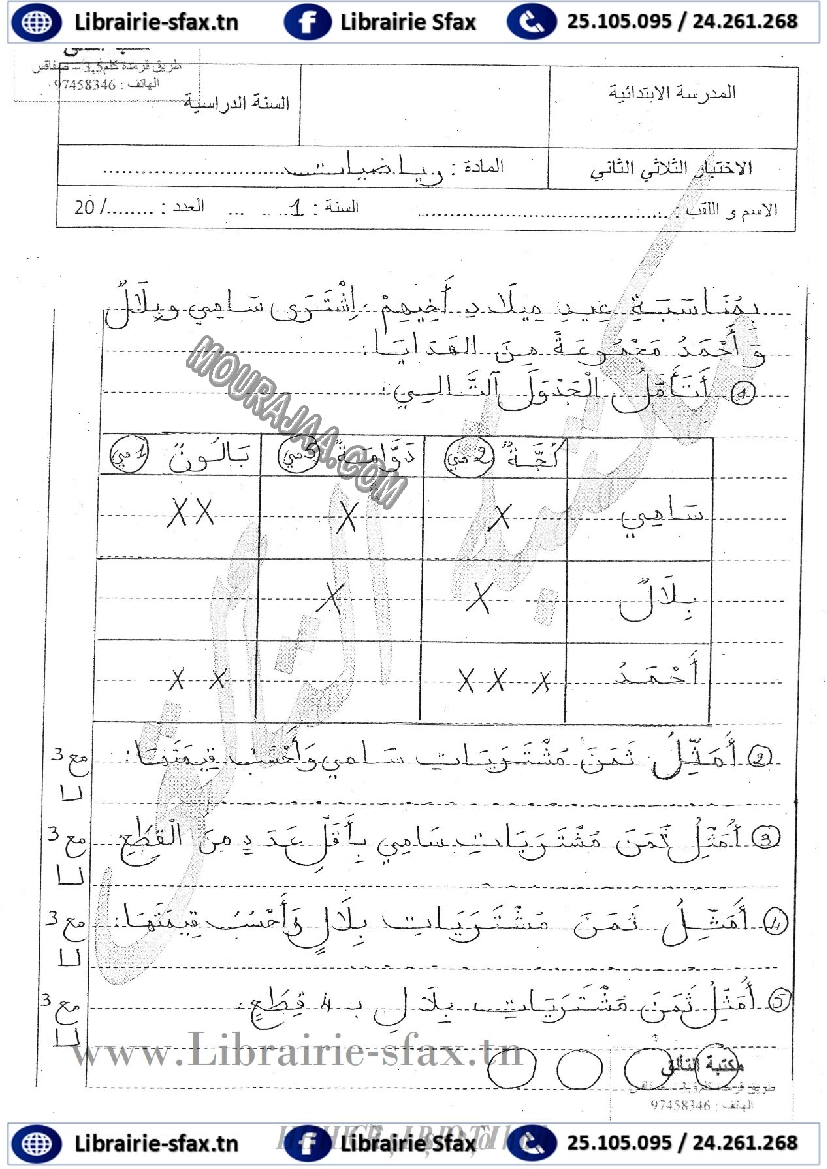 Librairie-sfax.tn Librairie Sfax 25.105.095 / 24.261.268
طريق قرمدة كلم3,5 – صفاقس
الهاتف : 97458346
المدرسة الابتدائية
السنة الدراسية
الاختبار الثلاثي الثاني المادة : رياضيات
الاسم و اللقب : السنة : 1 العدد : ......../ 20
بِمُنَاسَبَةِ عِيدِ مِيلَادِ أَخِيهِمْ، اِشْتَرَى سَامِي وبِلَالٌ
وَ أَحْمَدُ مَجْمُوعَةً مِنَ الهَدَايَا:
1 أَتَأَمَّلُ الْجَدْوَلَ التَّالِي:
كُجَّةٌ 2 مي دَوَّامَةٌ 3 مي بَالُونٌ 1 مي
سَامِي X X XX
بِلَالٌ X X
أَحْمَدُ X X X X X
2 أُمَثِّلُ ثَمَنَ مُشْتَرَيَاتِ سَامِي وَأَحْسُبُ قِيمَتَهَا: مع 3
3 أُمَثِّلُ ثَمَنَ مُشْتَرَيَاتِ سَامِي بِأَقَلِّ عَدَدٍ مِنَ الْقِطَعِ مع 3
4 أُمَثِّلُ ثَمَنَ مُشْتَرَيَاتِ بِلَالٍ وَأَحْسُبُ قِيمَتَهَا: مع 3
5 أُمَثِّلُ ثَمَنَ مُشْتَرَيَاتِ بِلَالِ بـ 4 قِطَعٍ: مع 3
MOURAJAA.COM
www.Librairie-sfax.tn
مكتبة التألق
الهاتف : 97458346
Librairie-sfax.tn Librairie Sfax 25.105.095 / 24.261.268